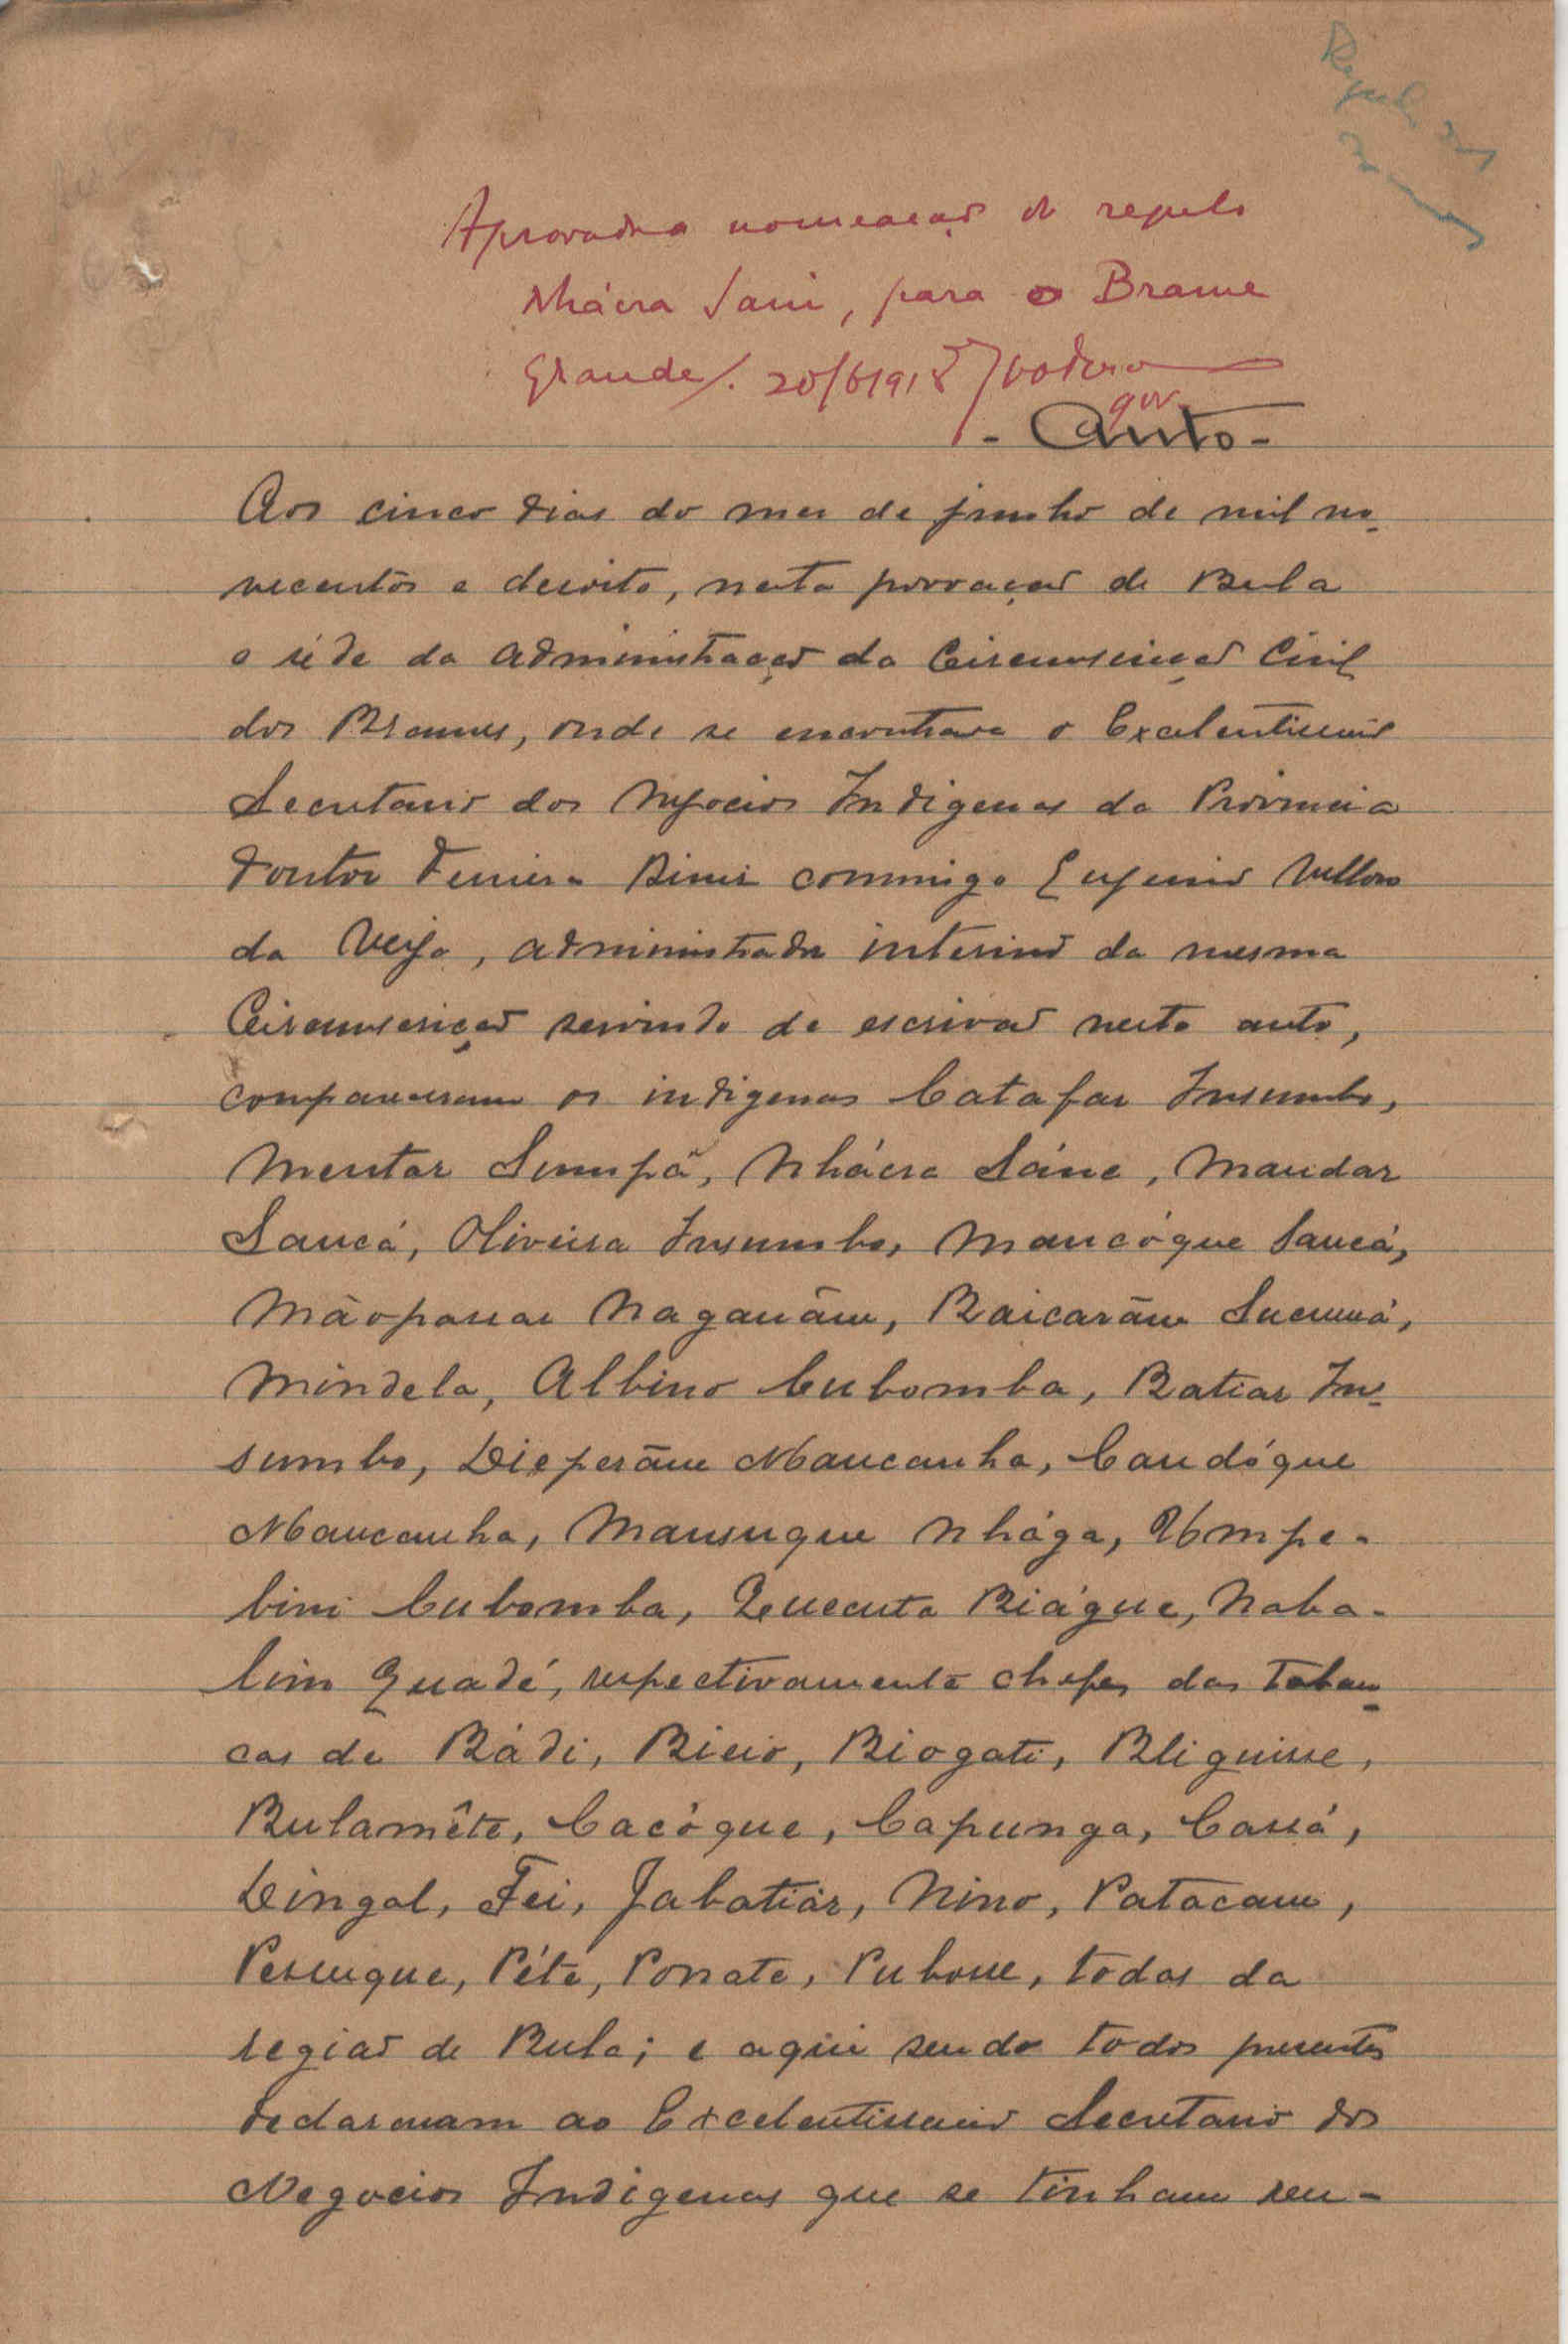 Aprovada a nomeação do regulo
Nhácra Sani, para o Brame
Grande/. 20/6/918
gov.
- Auto -
Aos cinco dias do mes de junho de mil no-
vecentos e desoito, nesta povoação de Bula
e séde da administração da Circunscrição Civil
dos Brames, onde se encontrava o Excelentissimo
Secretario dos Negocios Indigenas da Provincia
doutor Ferreira Diniz commigo Eugenio Velloso
da Veiga, administrador interino da mesma
Circunscrição servindo de escrivão neste auto,
compareceram os indigenas Catafar Insumbo,
Mentar Sumpã, Nhácra Sáne, Mandar
Sancá, Oliveira Insumbo, Mancógue Sancá,
Mãopassar Naganãm, Baicarãm Sucumá,
Mindela, Albino Cubomba, Batiar In-
sumbo, Dieperãm Mancanha, Candógue
Mancanha, Mansuque Nhága, Umpe-
bini Cubomba, Quecuta Biágue, Naba-
lim Quadé, respectivamente chefes das taban-
cas de Bádi, Bicio, Biogate, Bliquisse,
Bulamête, Cacógue, Capunga, Cassá,
Dingal, Fei, Jabatiár, Nino, Patacam,
Pessuque, Péte, Ponate, Pubosse, todas da
região de Bula; e aqui sendo todos presentes
declararam ao Excelentissimo Secretario dos
Negocios Indigenas que se tinham reu-